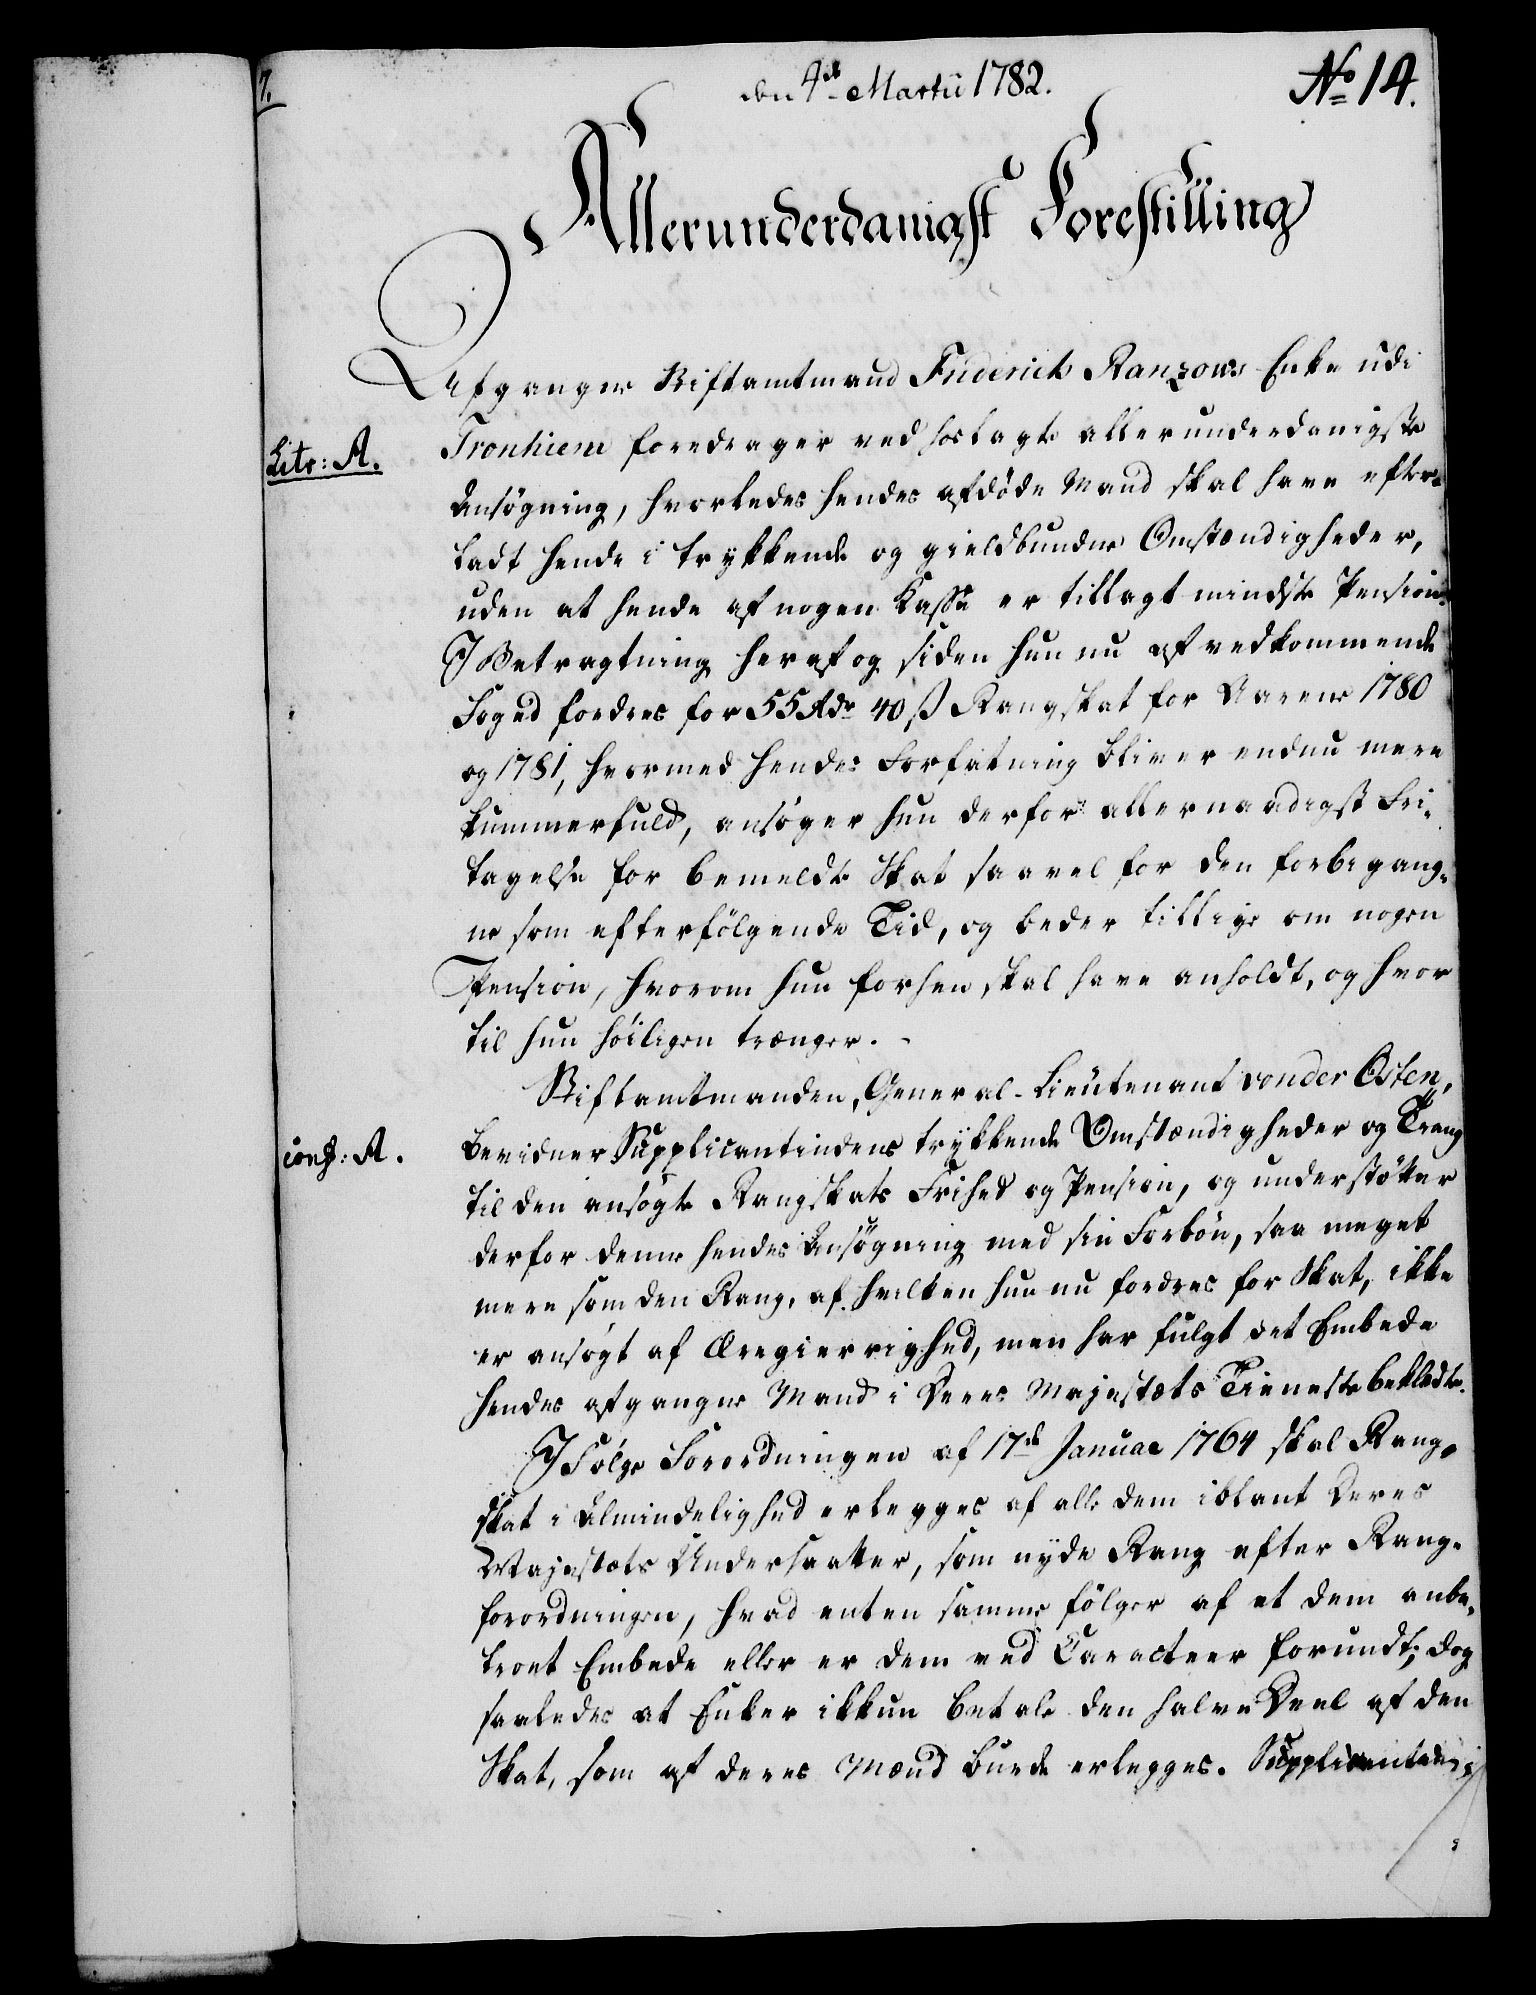 7.
den 4de Martii 1782.
No 14.
Allerunderdanigst Forestilling
Afgangne Stiftamtmand Friderich Ranzows Enke udi
Litr: A.
Tronhiem foredrager ved hoslagte allerunderdanigste
Ansøgning, hvorledes hendes afdøde Mand skal have efter-
ladt hende i trykkende og gieldbundne Omstændigheder,
uden at hende af nogen Kasse er tillagt mindste Pension.
I Betragtning heraf og siden hun nu af vedkommende
Foged fordres for 55 Rdr 40 ß Rangskat for Aarene 1780
og 1781, hvormed hendes Forfatning bliver endnu mere
kummerfuld, ansøger hun derfor allernaadigst Fri-
tagelse for bemeldte Skat saavel for den forbigang-
ne som efterfølgende Tid, og beder tillige om nogen
Pension, hvorom hun forhen skal have anholdt, og hvor
til hun høiligen trænger. -
Stiftamtmanden, General-Lieutenant vonder Osten,
conf: A.
bevidner Supplicantindens trykkende Omstændigheder og Trang
til den ansøgte Rangskats Frihed og Pension, og understøtter
derfor denne hendes Ansøgning med sin Forbøn, saa meget
mere som den Rang, af hvilken hun nu fordres for Skat, ikke
er ansøgt af Æregierrighed, men har fulgt det Embede
hendes afgangne Mand i Deres Majestæts Tieneste beklædte.
I Følge Forordningen af 17de Januar 1764 skal Rang-
skat i Almindelighed erlegges af alle dem iblant Deres
Majestæts Undersaatter, som nyde Rang efter Rang-
forordningen, hvad enten samme følger af et dem anbe-
troet Embede eller er dem ved Caracteer forundt; dog
saaledes at Enker ikkun betale den halve Deel af den
Skat, som af deres Mænd burde erlegges. Supplicantinden